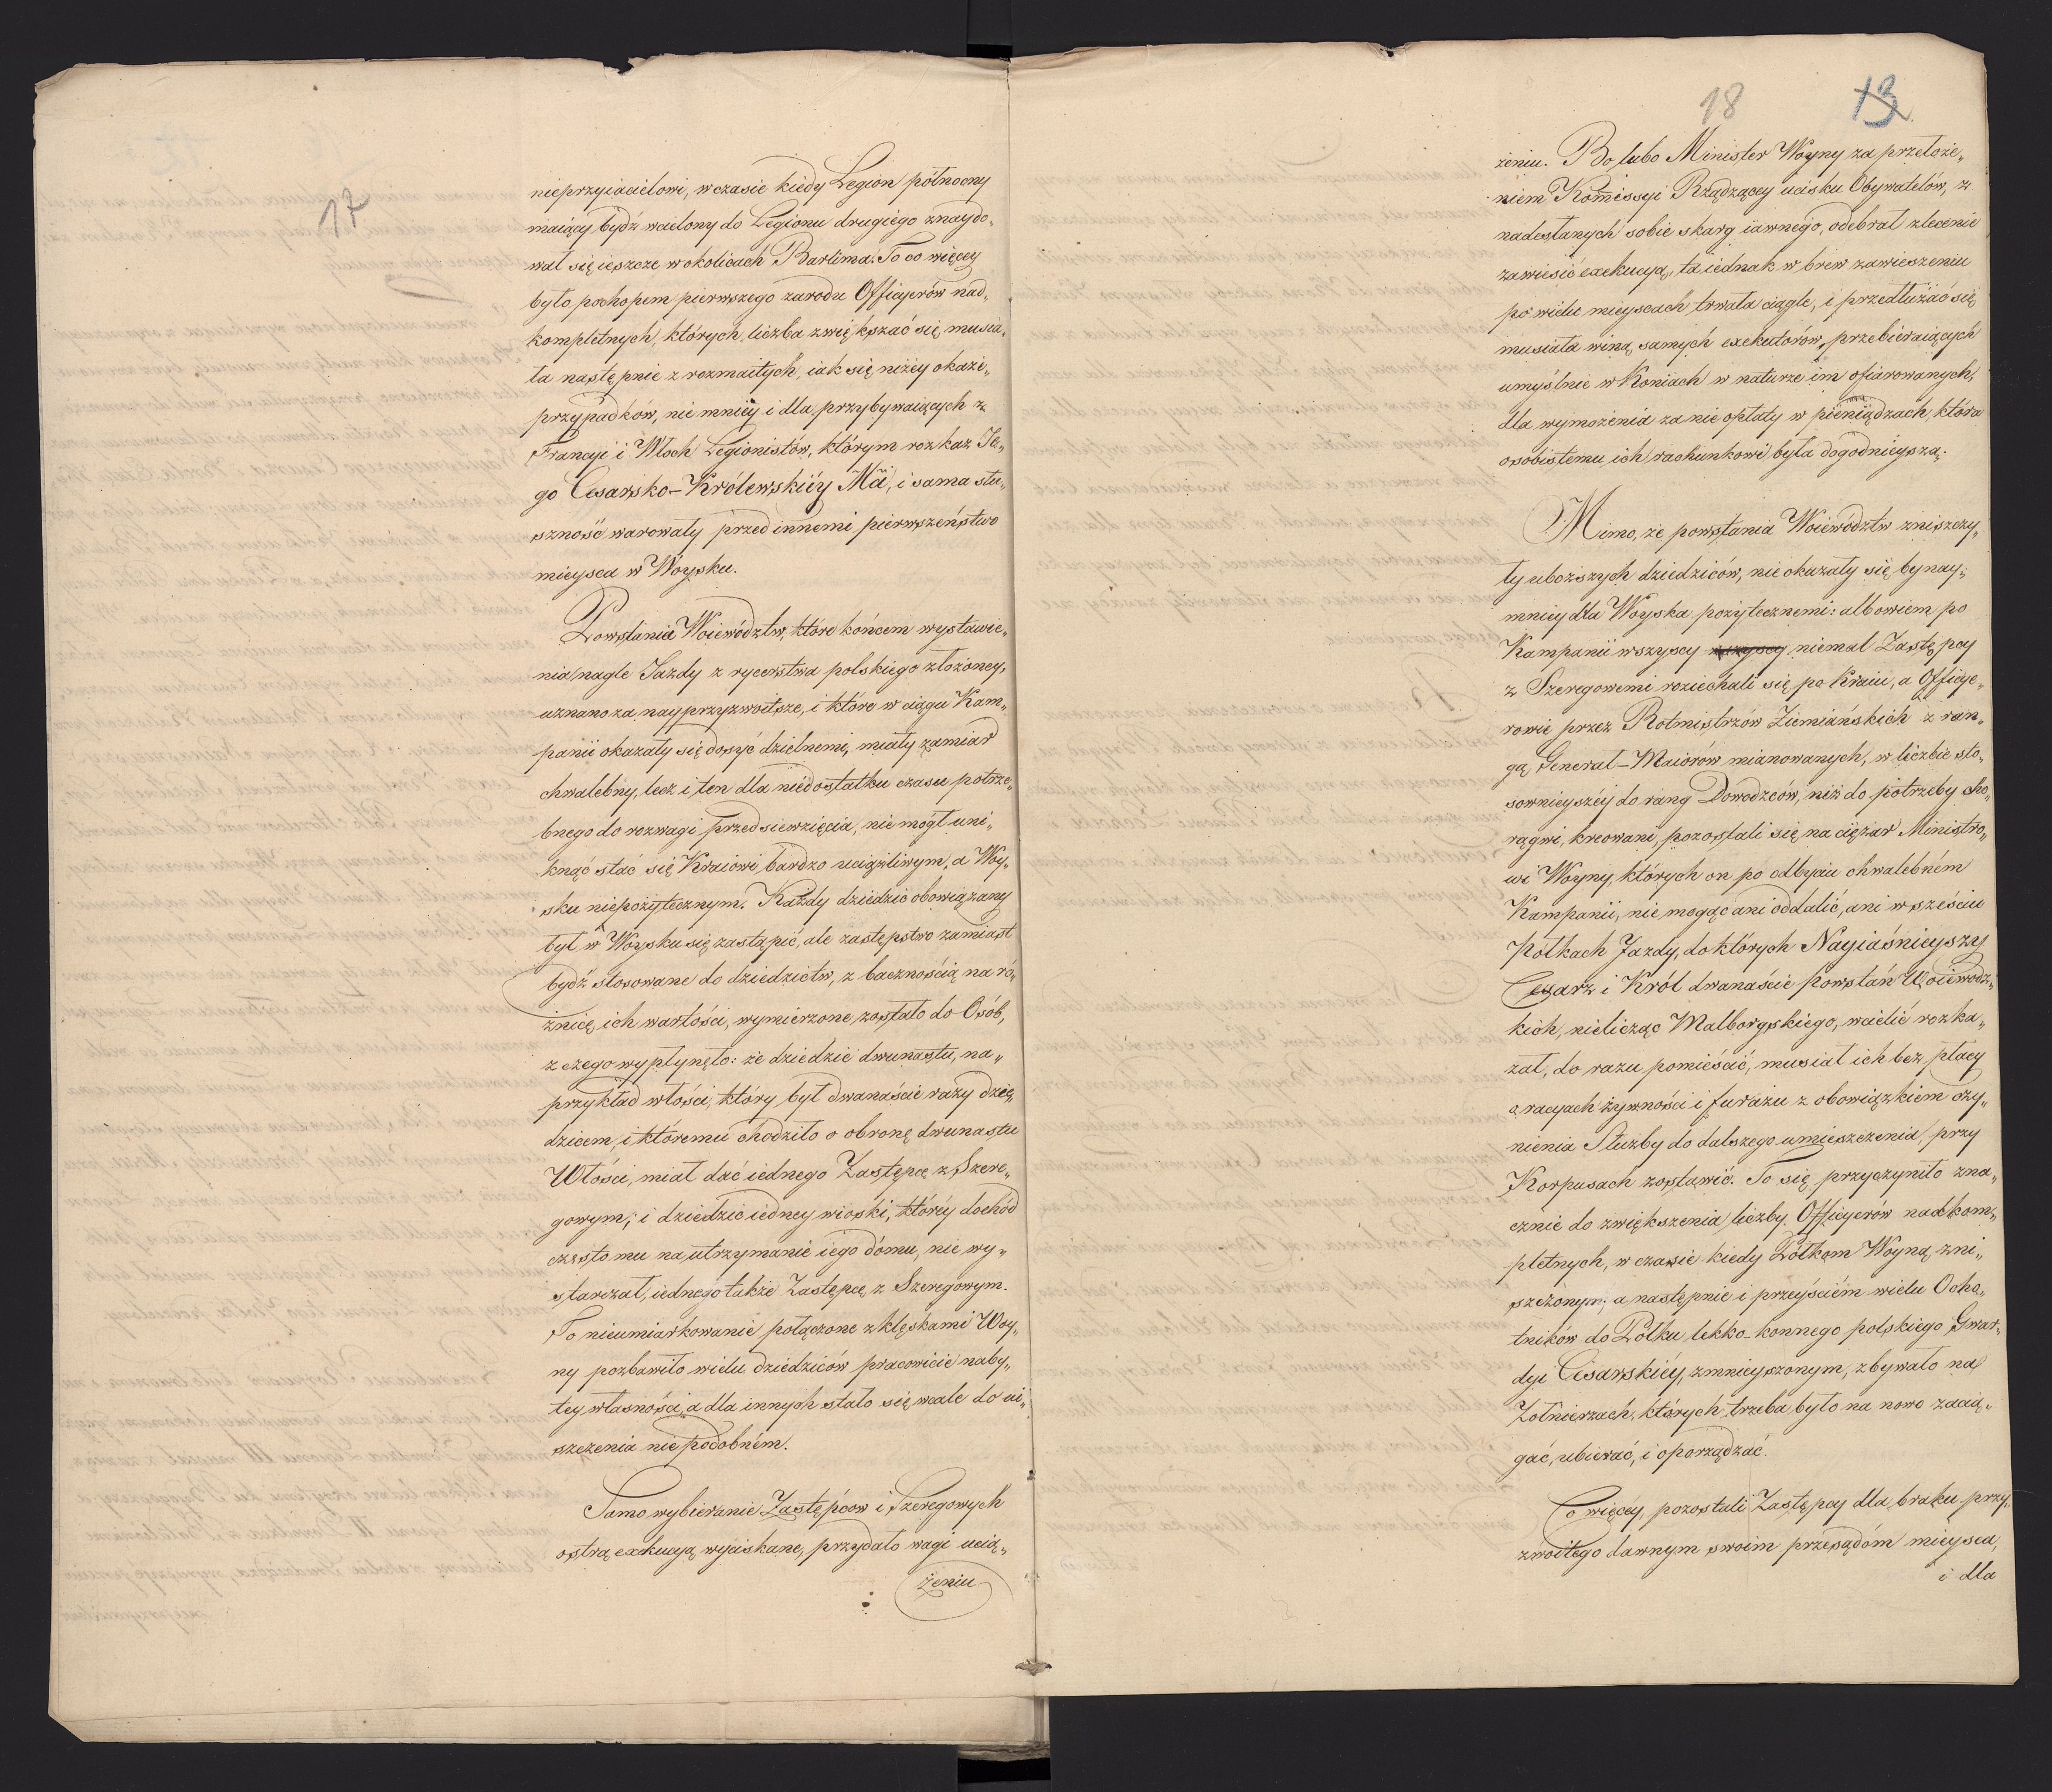 17
nieprzyiacielowi, w czasie kiedy Legion północny
maiący bydź wcielony do Legionu drugiego znaydo„
wał się ieszcze w okolicach Barlina. To co więcey
było pochopem pierwszego zarodu Officyerów nad„
kompletnych, których liczba zwiększać się musia„
ła następnie z rozmaitych, iak się niżéy okaże„
przypadków, nie mniéy i dla przybywaiących z
Francyi i Włoch Legionistów, którym rozkaz Je„
go Cesarsko-Królewskiéy Mći, i sama słu„
szność warowały przed innemi pierwszeństwo
mieysca w Woysku.
Powstania Woiewództw, które końcem wystawie„
nia nagle Jazdy z rycerstwa polskiego złożoney,
uznano za nayprzyzwoitsze, i które w ciągu Kam„
panii okazały się dosyć dzielnemi, miały zamiar
chwalebny, lecz i ten dla niedostatku czasu potrze„
bnego do rozwagi przedsiewzięcia, nie mógł uni„
knąć stać się Kraiowi bardzo uciążliwym, a Woy„
sku niepożytecznym. Każdy dziedzic obowiązany
był w Woysku się zastąpić, ale zastępstwo zamiast
bydź stosowane do dziedzictw, z bacznością na ró„
żnicę ich wartości, wymierzone zostało do Osób,
z czego wypłynęło: że dziedzic dwunastu, na„
przykład włości, który był dwanaście razy dzie„
dzicem, i któremu chodziło o obronę dwunastu
Włości, miał dać iednego Zastępcę z Szere„
gowym; i dziedzic iedney wioski, któréy dochód
często mu na utrzymanie iego dómu, nie wy„
starczał, iednego także Zastępcę z Szeregowym.
To nieumiarkowanie połączone z klęskami Woy„
ny pozbawiło wielu dziedziców pracowicie naby„
tey własności, a dla innych stało się wcale do ui„
szczenia niepodobném.
Samo wybieranie Zastępców i Szeregowych
ostrą exekucyą wyciskane, przydało wagi ucią„
żeniu
18
13
żeniu. Bo lubo Minister Woyny za przełoże„
niem Komissyi Rządzącey ucisku Obywatelów, z
nadesłanych sobie skarg iawnego, odebrał zlecenie
zawiesić exekucyą, ta iednak w brew zawieszeniu
po wielu mieyscach trwała ciągle, i przedłużać się
musiała winą samych exekutorów, przebieraiących
umyślnie w Koniach w naturze im ofiarowanych,
dla wymożenia za nie opłaty w pieniądzach, która
osobistemu ich rachunkowi była dogodnieyszą.
Mimo, że powstania Woiewództw zniszczy„
ły uboższych dziedziców, nie okazały się bynay„
mniey dla Woyska pożytecznemi: albowiem po
Kampanii wszyscy wszyscy niemal Zastępcy
z Szeregowemi roziechali się po Kraiu, a Officye„
rowie przez Rotmistrzów Ziemiańskich z ran„
gą Generał-Maiorów mianowanych, w liczbie sto„
sownieyszéy do rang Dowodzców, niż do potrzeby cho„
rągwi, kreowani, pozostali się na ciężar Ministro„
wi Woyny, których on po odbyciu chwalebném
Kampanii, nie mogąc ani oddalić, ani w sześciu
Półkach Jazdy, do których Nayiaśnieyszy
Cesarz i Król dwanaście powstań Woiewodz„
kich, nielicząc Malborgskiego, wcielić rozka„
zał, do razu pomieścić, musiał ich bez płacy
o racyach żywności i furażu z obowiązkiem czy„
nienia Służby do dalszego umieszczenia, przy
Korpusach zostawić. To się przyczyniło zna„
cznie do zwiększenia liczby Officyerów nadkom„
pletnych, w czasie kiedy Półkom Woyną zni„
szczonym; a następnie i przeyściém wielu Ocho„
tników do Półku lekko-konnego polskiego Gwar„
dyi Cesarskiéy, zmnieyszonym, zbywało na
Żołnierzach, których trzeba było na nowo zacią„
gać, ubierać, i oporządzać.
Co więcéy, pozostali Zastępcy dla braku przy„
zwoitego dawnym swoim przesądóm mieysca,
i dla